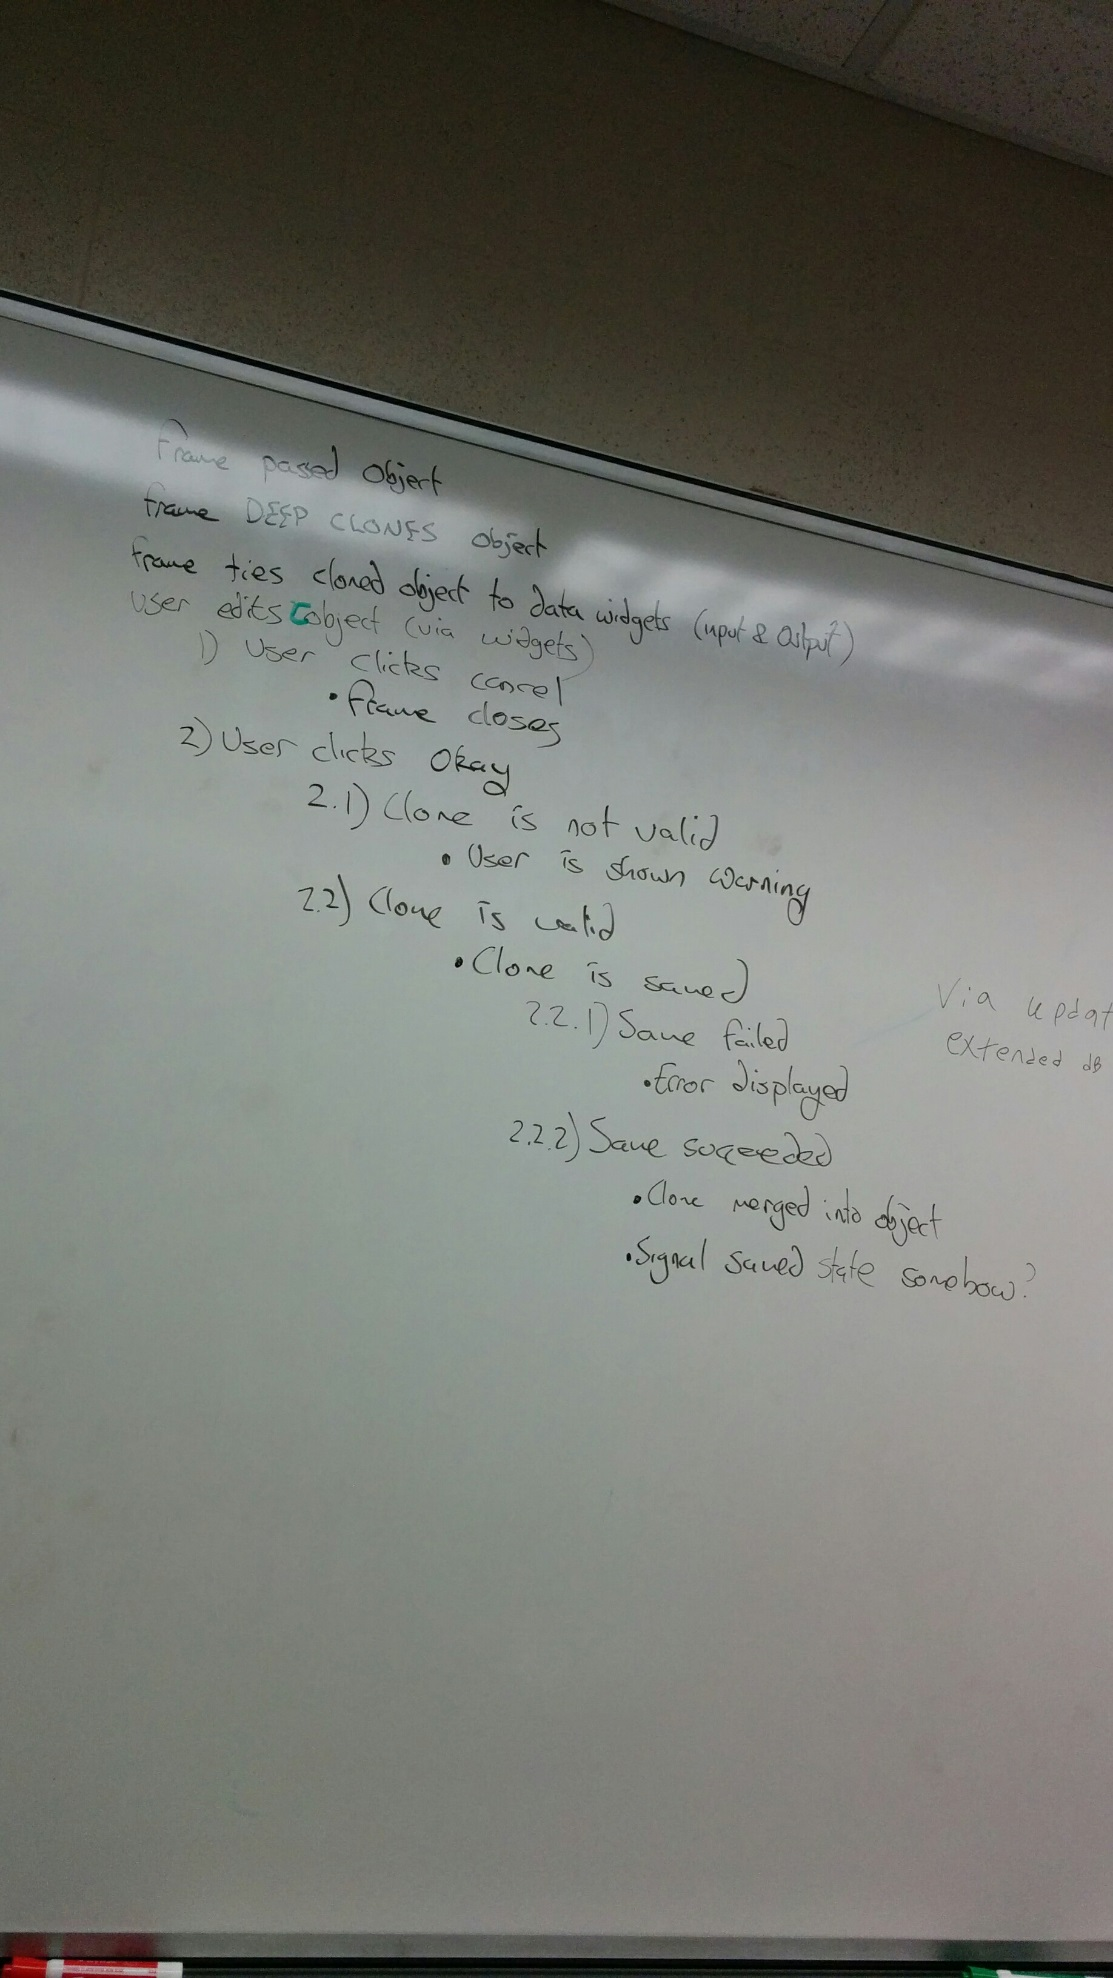 frame passed object
frame DEEP CLONES object
frame ties cloned object to data widgets (input & output)
user edits Cobject (via widgets)
1) User clicks cancel
• frame closes
2) User clicks Okay
2.1) Clone is not valid
• User is shown warning
2.2) Clone is valid
• Clone is saved
Via updat
extended dB
2.2.1) Save failed
• Error displayed
2.2.2) Save succeeded
• Clone merged into object
• Signal saved state somehow?